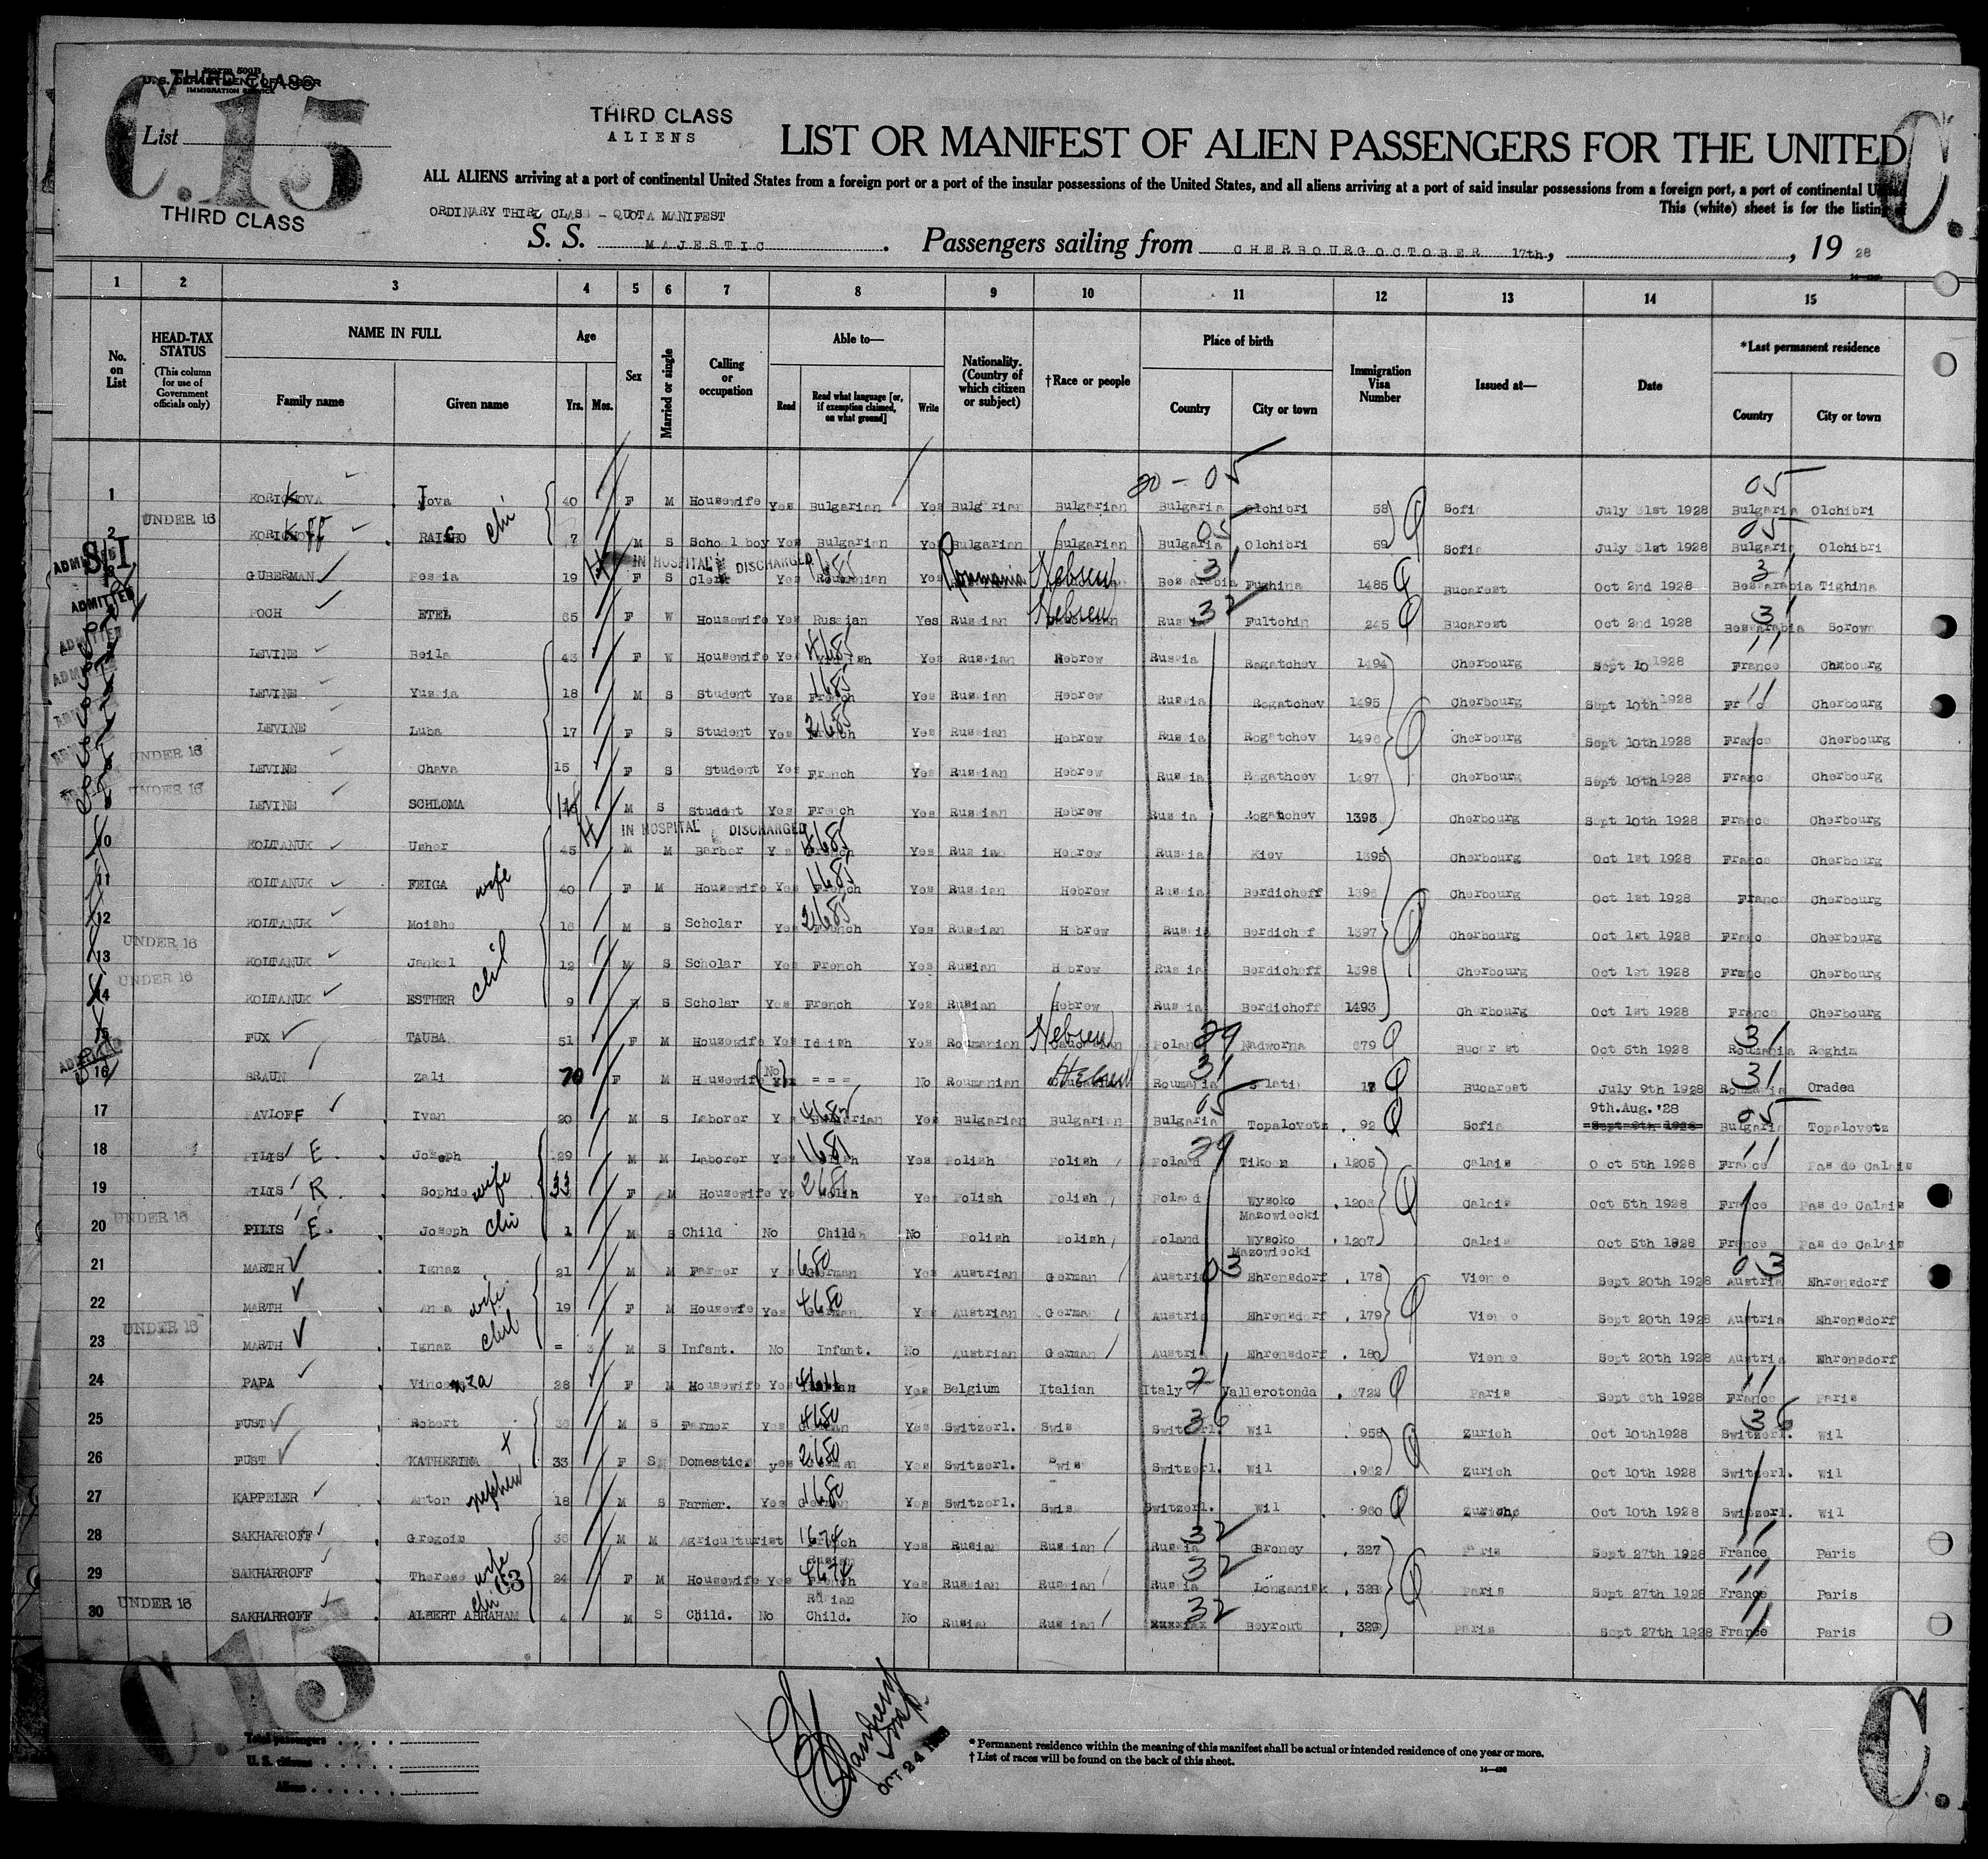 Form 500B
U. S. DEPARTMENT OF LABOR
IMMIGRATION SERVICE
THIRD CLASS
List
C.15
THIRD CLASS
THIRD CLASS
ALIENS
LIST OR MANIFEST OF ALIEN PASSENGERS FOR THE UNITED
C.
ALL ALIENS arriving at a port of continental United States from a foreign port or a port of the insular possessions of the United States, and all aliens arriving at a port of said insular possessions from a foreign port, a port of continental United
This (white) sheet is for the listing of
ORDINARY THIRD CLASS - QUOTA MANIFEST
S. S. MAJESTIC. Passengers sailing from CHERBOURG OCTOBER 17th, , 19 28
1 2 3 4 5 6 7 8 9 10 11 12 13 14 15
No. on List
HEAD-TAX STATUS (This column for use of Government officials only)
NAME IN FULL
Family name Given name
Age
Yrs. Mos.
Sex
Married or single
Calling or occupation
Able to—
Read
Read what language [or, if exemption claimed, on what ground]
Write
Nationality. (Country of which citizen or subject)
†Race or people
Place of birth
Country City or town
Immigration Visa Number
Issued at—
Date
*Last permanent residence
Country City or town
1 Jova 40 F M Housewife Yes Bulgarian Yes Bulgarian Bulgarian Bulgaria Olchibri 58 Sofia July 31st 1928 Bulgaria Olchibri
2 UNDER 16 chi 7 M S School boy Yes Bulgarian Yes Bulgarian Bulgarian Bulgaria Olchibri 59 Sofia July 31st 1928 Bulgaria Olchibri
ADMITTED SI GUBERMAN Pessia 19 IN HOSPITAL DISCHARGED F S Clerk Yes Roumanian Yes Roumania Hebrew Bessarabia 1485 Bucarest Oct 2nd 1928 Bessarabia Tighina
ADMITTED POCH ETEL 65 F W Housewife Yes Russian Yes Russian Hebrew Russia Fultchin 245 Bucarest Oct 2nd 1928 Bessarabia
ADMITTED LEVINE Beila 43 F W Housewife Yes Yes Russian Hebrew Russia Rogatchev 1494 Cherbourg Sept 10 1928 France Cherbourg
ADMITTED LEVINE Yussia 18 M S Student Yes French Yes Russian Hebrew Russia Rogatchev 1495 Cherbourg Sept 10th 1928 Cherbourg
LEVINE Luba 17 F S Student Yes French Yes Russian Hebrew Russia Rogatchev 1496 Cherbourg Sept 10th 1928 France Cherbourg
UNDER 16 LEVINE Chava 15 F S Student Yes French Yes Russian Hebrew Russia Rogatchev 1497 Cherbourg Sept 10th 1928 France Cherbourg
UNDER 16 LEVINE SCHLOMA M S Student Yes French Yes Russian Hebrew Russia Rogatchev 1393 Cherbourg Sept 10th 1928 France Cherbourg
10 KOLTANUK Usher 45 IN HOSPITAL DISCHARGED M M Barber Yes French Yes Russian Hebrew Russia Kiev 1395 Cherbourg Oct 1st 1928 France Cherbourg
11 KOLTANUK FEIGA wife 40 F M Housewife Yes French Yes Russian Hebrew Russia Berdichoff 1396 Cherbourg Oct 1st 1928 France Cherbourg
12 KOLTANUK Moishe 16 M S Scholar Yes French Yes Russian Hebrew Russia Berdichoff 1397 Cherbourg Oct 1st 1928 France Cherbourg
13 UNDER 16 KOLTANUK Jankel chil 12 M S Scholar Yes French Yes Russian Hebrew Russia Berdichoff 1398 Cherbourg Oct 1st 1928 France Cherbourg
14 UNDER 16 KOLTANUK ESTHER 9 S Scholar Yes French Yes Russian Hebrew Russia Berdichoff 1493 Cherbourg Oct 1st 1928 France Cherbourg
15 FUX TAUBA 51 F M Housewife Yes Idish Yes Roumanian Hebrew Poland 29 Nadworna 679 Bucarest Oct 5th 1928 Roumania Reghin
16 ADMITTED BRAUN Zali 70 F M Housewife (No) = = = No Roumanian Hebrew Roumania 31 Slati 17 Bucarest July 9th 1928 Roumania Oradea
17 PAVLOFF Ivan 20 M S Laborer Yes Bulgarian Yes Bulgarian Bulgarian Bulgaria Topalovetz 92 Sofia 9th.Aug.'28 Bulgaria Topalovetz
18 PILIS E. Joseph 29 M M Laborer Yes Polish Yes Polish Polish Poland 29 1205 Calais Oct 5th 1928 France Pas de Calais
19 PILIS R. Sophie wife 33 F M Housewife Yes Polish Yes Polish Polish Poland Wysoko Mazowiecki 1206 Calais Oct 5th 1928 France Pas de Calais
20 UNDER 16 PILIS E. Joseph chi 1 M S Child No Child No Polish Polish Poland Wysoko Mazowiecki 1207 Calais Oct 5th 1928 France Pas de Calais
21 MARTH Ignaz 21 M M Farmer Yes German Yes Austrian German Austria 03 Ehrensdorf 178 Vienne Sept 20th 1928 Austria Ehrensdorf
22 MARTH Anna wife 19 F M Housewife Yes German Yes Austrian German Austria Ehrensdorf 179 Vienne Sept 20th 1928 Austria Ehrensdorf
23 UNDER 16 MARTH Ignaz chil = 3 M S Infant. No Infant. No Austrian German Austria Ehrensdorf 180 Vienne Sept 20th 1928 Austria Ehrensdorf
24 PAPA Vincenza 28 F M Housewife Yes Italian Yes Belgium Italian Italy Vallerotonda 3722 Paris Sept 6th 1928 France Paris
25 FUST Robert 36 M S Farmer Yes German Yes Switzerl. Swiss Switzerl. 36 Wil 958 Zurich Oct 10th 1928 Switzerl. Wil
26 FUST KATHERINA 33 F S Domestic yes German Yes Switzerl. Swiss Switzerl. Wil 962 Zurich Oct 10th 1928 Switzerl. Wil
27 KAPPELER Anton nephew 18 M S Farmer. Yes German Yes Switzerl. Swiss Switzerl. Wil 960 Zurich Oct 10th 1928 Switzerl. Wil
28 SAKHARROFF Gregoir 36 M M Agriculturist French Russian Yes Russian Russian Russia 32 Groney 327 Paris Sept 27th 1928 France Paris
29 SAKHARROFF Therese wife 24 F M Housewife Yes French Russian Yes Russian Russian Russia 32 328 Paris Sept 27th 1928 France Paris
30 UNDER 16 SAKHARROFF ALBERT ABRAHAM chi 4 M S Child. No Child. No Russian Russian 32 Beyrout 329 Paris Sept 27th 1928 France Paris
C.15
Total passengers
U. S. citizens
Aliens
OCT 24 1928
* Permanent residence within the meaning of this manifest shall be actual or intended residence of one year or more.
† List of races will be found on the back of this sheet.
C.